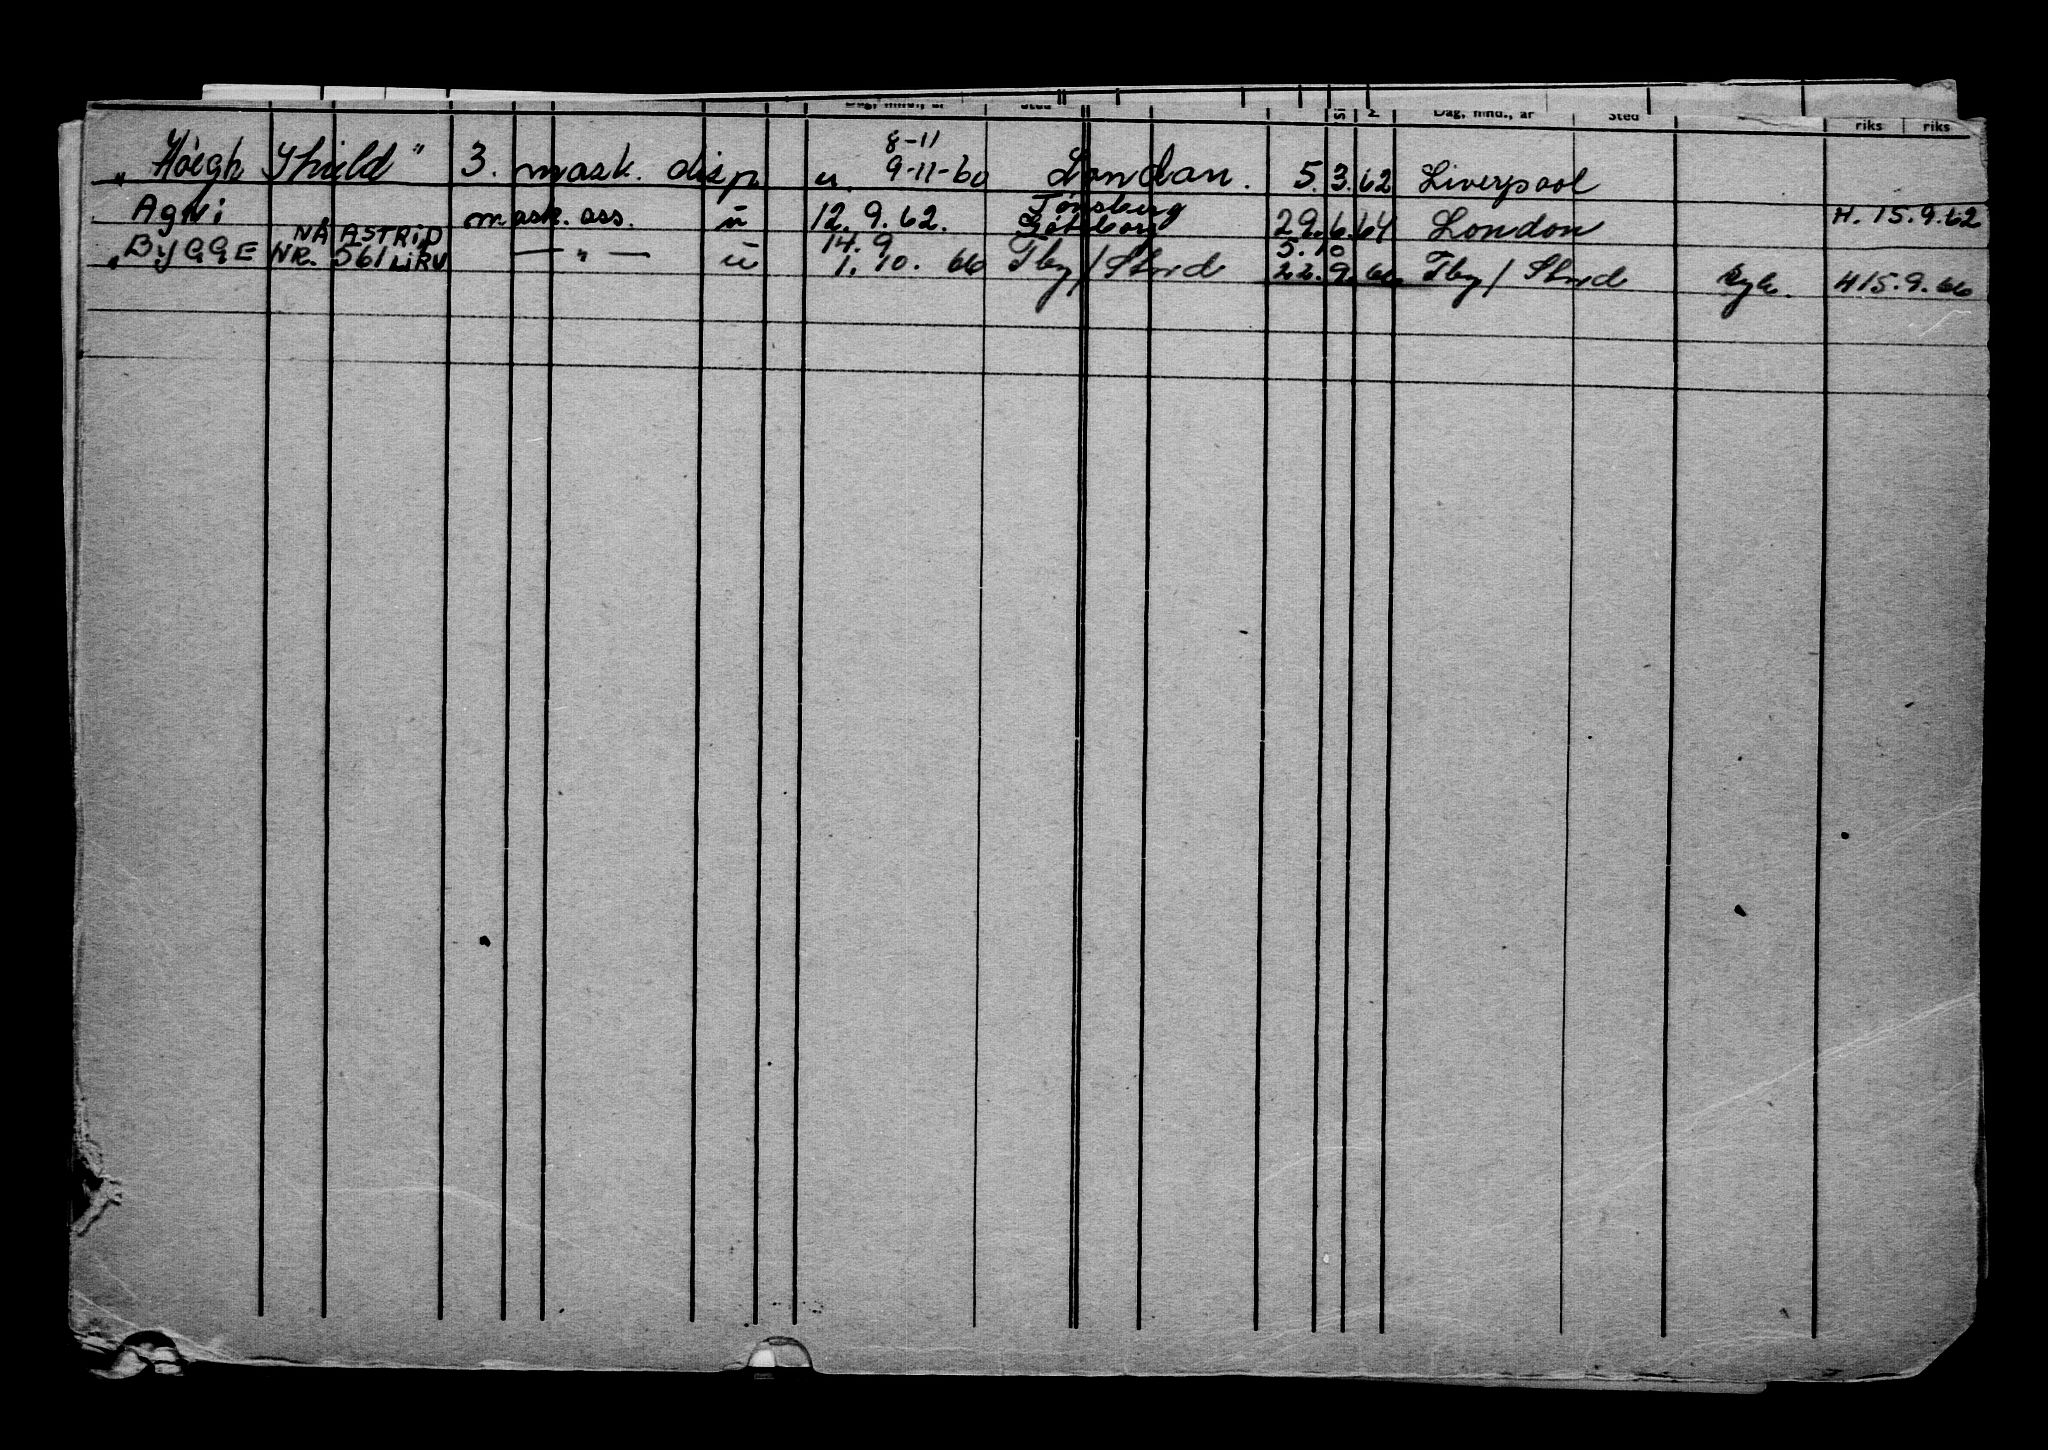 Dag, mnd., år Sted Dag, mnd., år Sted riks riks
8-11
„Höegh Shield" 3. mask. disp u. 9-11-60 London. 5.3.62 Liverpool
Tønsberg
Agni mask. ass. ü 12.9.62. Göteborg 29.6.64 London H. 15.9.62
NÅ ASTRID 14.9 5.10
„BYGGE NR. 561 LIKV — „ — ü 1.10. 66 Tbg/Stord 22.9.66 Tbg/Stord syk. H15.9.66